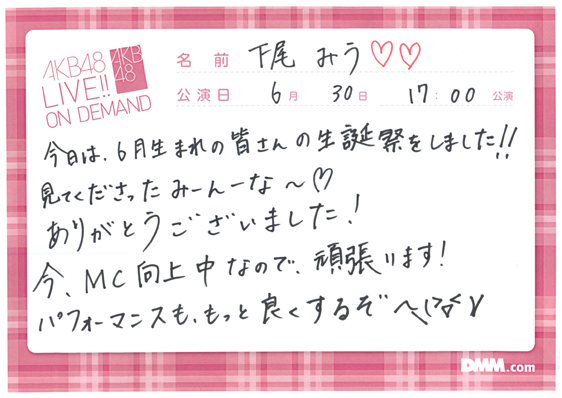 AKB48
LIVE!!
ON DEMAND
AKB
48
名前 下尾 みう♡♡
公演日 6月 30日 17:00 公演
今日は、6月生まれの皆さんの生誕祭をしました!!
見てくださったみーんーな〜♡
ありがとうございました!
今、MC向上中なので、頑張ります!
パフォーマンスも、もっと良くするぞ
DMM.com